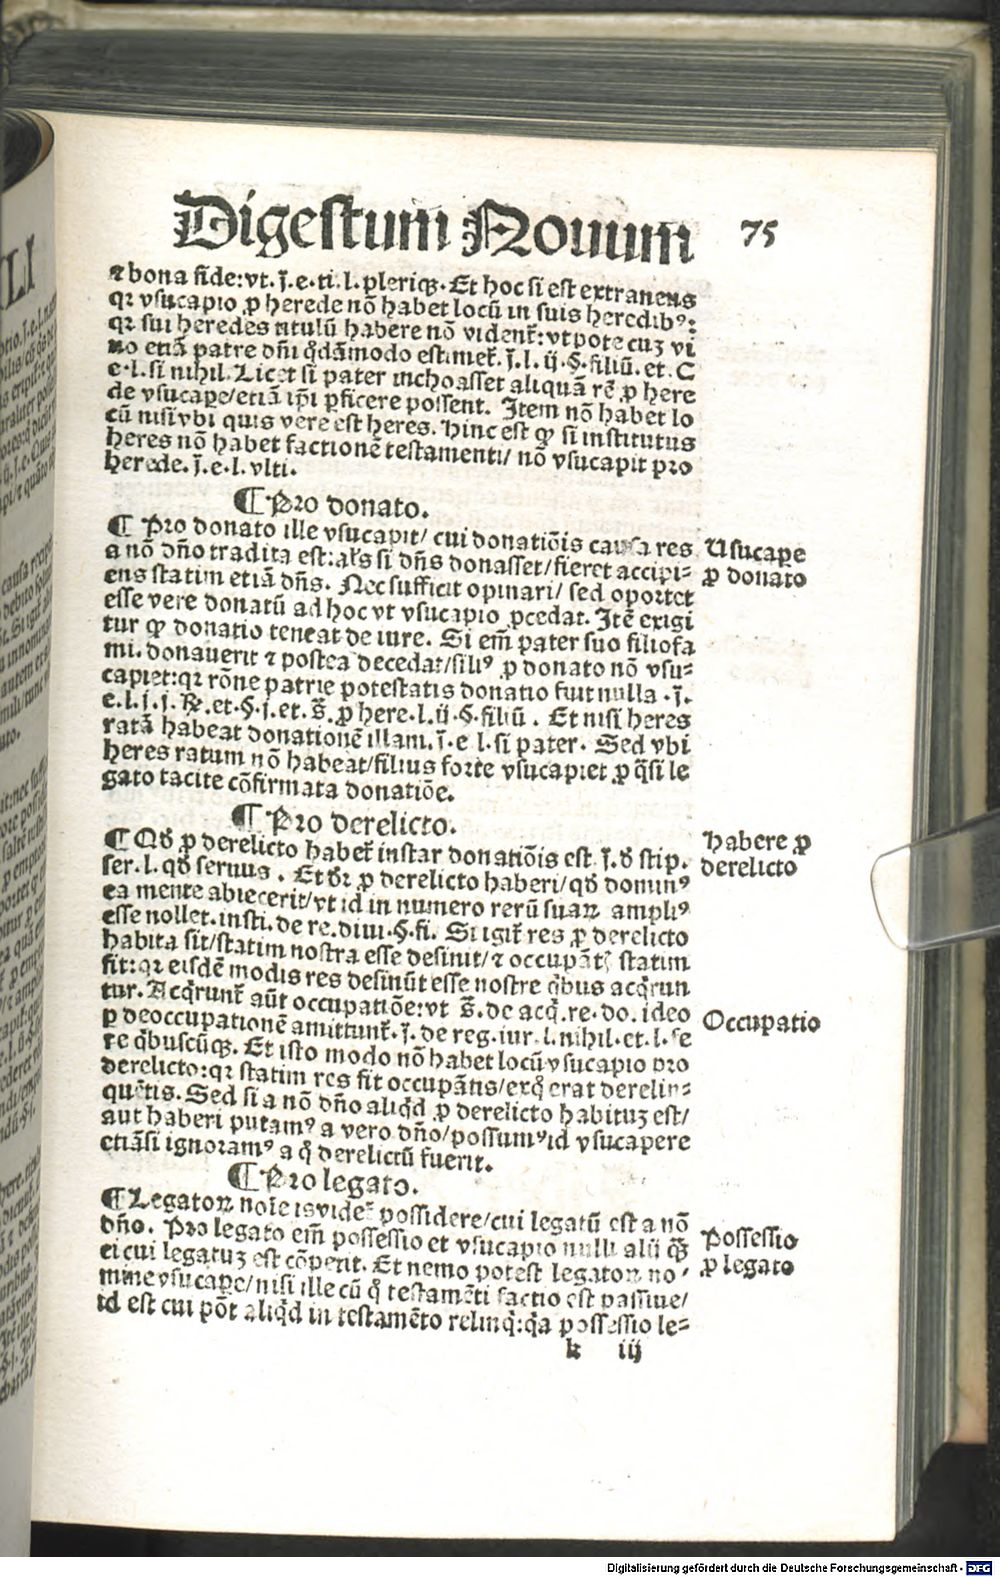 Digestum Nouum 75
⁊ bona fide: vt. j̄. e. ti. l. pleriqȝ. Et hoc si est extraneus
qꝛ vsucapio ꝓ herede nō habet locū in suis heredibꝰ:
qꝛ sui heredes titulū habere nō vident᷑: vtpote cuȝ vi
uo etiā patre dn̄i q̄dāmodo estiment᷑. j̄. l. ij. §. filiū. et. C
e. l. si nihil. Licet si pater inchoasset aliquā rē ꝓ here
de vsucape/ etiā ip̄i ꝑficere possent. Item nō habet lo
cū nisi vbi quis vere est heres. Hinc est ꝙ si institutus
heres nō habet factionē testamenti/ nō vsucapit pro
herede. j̄. e. l. vlti.
¶ Pro donato.
¶ Pro donato ille vsucapit/ cui donatiōis causa res
a nō dn̄o tradita est: al̄s si dn̄s donasset/ fieret accipi-
ens statim etiā dn̄s. Nec sufficit opinari/ sed oportet
esse vere donatū ad hoc vt vsucapio ꝓcedat. Itē exigi
tur ꝙ donatio teneat de iure. Si em̄ pater suo filiofa
mi. donauerit ⁊ postea decedat/ filiꝰ ꝓ donato nō vsu-
capiet: qꝛ rōne patrie potestatis donatio fuit nulla. j̄.
e. l. j. j. ℟. et. §. j. et. s̄. ꝓ here. l. ij. §. filiū. Et nisi heres
ratā habeat donationē illam. j̄. e l. si pater. Sed vbi
heres ratum nō habeat/ filius forte vsucapiet ꝓ q̄si le
gato tacite cōfirmata donatiōe.
¶ Pro derelicto.
¶ Qd̄ ꝓ derelicto habet᷑ instar donatiōis est. j̄. d̄ stip.
ser. l. qd̄ seruus. Et dr̄ ꝓ derelicto haberi/ qd̄ dominꝰ
ea mente abiecerit/ vt id in numero rerū suaꝝ ampliꝰ
esse nollet. insti. de re. diui. §. fi. Si igit᷑ res ꝓ derelicto
habita sit/ statim nostra esse desinit/ ⁊ occupāt᷑ statim
fit: qꝛ eisdē modis res desinūt esse nostre q̄bus acq̄run
tur. Acq̄runt᷑ aūt occupatiōe: vt s̄. de acq̄. re. do. ideo
ꝑ deoccupationē amittunt᷑. j̄. de reg. iur. l. nihil. et. l. fe
re q̄buscūqȝ. Et isto modo nō habet locū vsucapio pro
derelicto: qꝛ statim res fit occupātis/ ex q̄ erat derelin-
quētis. Sed si a nō dn̄o aliq̄d ꝓ derelicto habituȝ est/
aut haberi putamꝰ a vero dn̄o/ possumꝰ id vsucapere
etiāsi ignoramꝰ a q̄ derelictū fuerit.
¶ Pro legato.
¶ Legatoꝝ noīe is videt᷑ possidere/ cui legatū est a nō
dn̄o. Pro legato em̄ possessio et vsucapio nulli alij q̄ȝ
ei cui legatuȝ est cōpetit. Et nemo potest legatoꝝ no-
mine vsucape/ nisi ille cū q̄ testamēti factio est passiue/
id est cui pōt aliq̄d in testamēto relinq̄: q̄a possessio le-
k iij
Usucape
ꝓ donato
Habere ꝓ
derelicto
Occupatio
Possessio
ꝓ legato
Digitalisierung gefördert durch die Deutsche Forschungsgemeinschaft - DFG